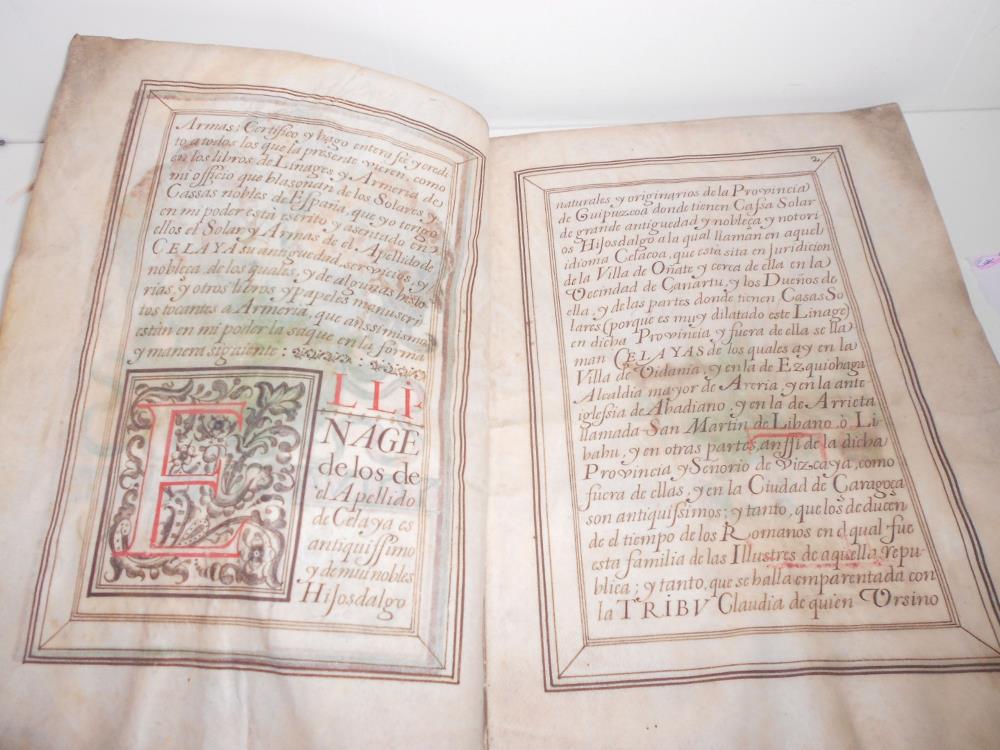 Armas: Certifico y hago entera feé y credi
to a todos los que la presente vieren, como
en los libros de Linages y Armeria de
mi officio que blasonan de los Solares y
Cassas nobles de España, que yo tengo
en mi poder está escrito y asentado en
ellos el Solar y Armas de el Apellido de
CELAYA su antiguedad, servicios, y
nobleça, de los quales, y de algunas histo
rias, y otros libros y papeles manuscri
tos tocantes a Armeria, que anssimismo
están en mi poder la saqué en la forma
y manera siguiente:
EL LI
NAGE
de los de
el Apellido
de Celaya es
antiquissimo
y de mui nobles
Hijosdalgo
2
naturales y originarios de la Provincia
de Guipuzcoa donde tienen Cassa Solar
de grande antiguedad y nobleça y notori
os Hijosdalgo a la qual llaman en aquel
idioma Celacoa, que esta sita en Juridicion
de la Villa de Oñate y cerca de ella en la
Vecindad de Cañartu, y los Dueños de
ella, y de las partes donde tienen Casas So
lares (porque es muy dilatado este Linage)
en dicha Provincia y fuera de ella se lla
man CELAYAS de los quales ay en la
Villa de Vidania, y en la de Ezquiohaga
Alcaldia mayor de Areria, y en la ante
iglesia de Abadiano, y en la de Arrieta
llamada San Martin de Libano, ò Li-
bahu, y en otras partes, anssi de la dicha
Provincia y Señorio de Vizcaya, como
fuera de ellas, y en la Ciudad de Çaragoça
son antiquissimos; y tanto, que los deducen
de el tiempo de los Romanos en el qual fue
esta familia de las Illustres de aquella repu-
blica; y tanto, que se halla emparentada con
la TRIBV Claudia de quien Ursino